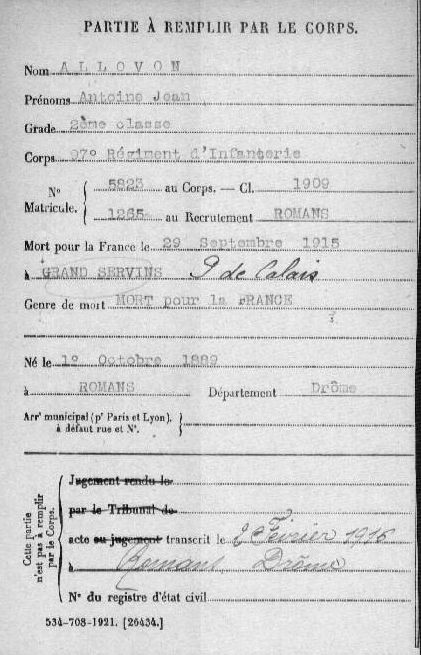 PARTIE À REMPLIR PAR LE CORPS.
Nom ALLOVON
Prénoms Antoine Jean
Grade 2ème classe
Corps 97° Régiment d'Infanterie
N° Matricule. { 5823 au Corps. — Cl. 1909
1265 au Recrutement ROMANS
Mort pour la France le 29 Septembre 1915
à GRAND SERVINS P de Calais
Genre de mort MORT pour la FRANCE
Né le 1° Octobre 1889
à ROMANS Département Drôme
Arrt municipal (pr Paris et Lyon), à défaut rue et N°. }
Cette partie n'est pas à remplir par le Corps. {
Jugement rendu le
par le Tribunal de
acte ou jugement transcrit le 2 Février 1916
à Romans Drôme
N° du registre d'état civil
534-708-1921. [26434.]